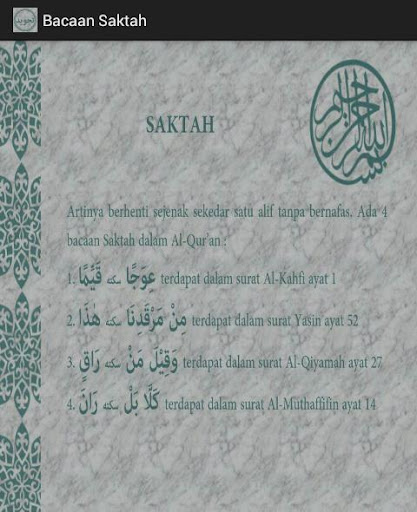 Bacaan Saktah
SAKTAH
Artinya berhenti sejenak sekedar satu alif tanpa bernafas. Ada 4
bacaan Saktah dalam Al-Qur'an :
1. عِوَجًا سكته قَيِّمًا terdapat dalam surat Al-Kahfi ayat 1
2. مِنْ مَرْقَدِنَا سكته هٰذَا terdapat dalam surat Yasin ayat 52
3. وَقِيْلَ مَنْ سكته رَاقٍ terdapat dalam surat Al-Qiyamah ayat 27
4. كَلَّا بَلْ سكته رَانَ terdapat dalam surat Al-Muthaffifin ayat 14